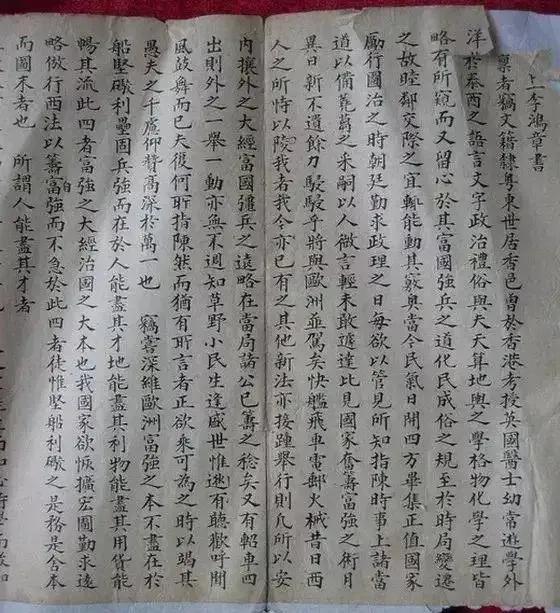 李鴻章書
稟者竊文籍隸粵東世居香邑曾於香港考授英國醫士幼常遊學外
洋於泰西之語言文字政治禮俗與天天算地輿之學格物化學之理皆
略有所窺而又留心於其富國強兵之道化民成俗之規至於時局變遷
之故睦鄰交際之宜輒能動其竅奧當今民氣日開四方畢集正值國家
勵行國治之時朝廷勤求政理之日每欲以管見所知指陳時事上諸當
道以備蕘蒭之采嗣以人微言輕未敢遽達比見國家奮籌富強之術月
異日新不遺餘力駸駸乎將與歐洲並駕矣快艦飛車電郵火械昔日西
人之所恃以陵我者我今亦已有之其他新法亦接踵舉行則凡所以安
內攘外之大經富國彊兵之遠略在當局諸公已籌之稔矣又有軺車四
出則外之一舉一動亦無不週知草野小民生逢盛世惟逖有聽歡呼聞
風鼓舞而已夫復何所指陳然而猶有所言者正欲乘可為之時以竭其
愚夫之千慮仰贊高深於萬一也 竊嘗深維歐洲富強之本不盡在於
船堅礮利壘固兵強而在於人能盡其才地能盡其利物能盡其用貨能
暢其流此四者富強之大經治國之大本也我國家欲恢擴宏圖勤求遠
略倣行西法以籌富自強而不急於此四者徒惟堅船利礮之是務是舍本
而國末者也 所謂人能盡其才者